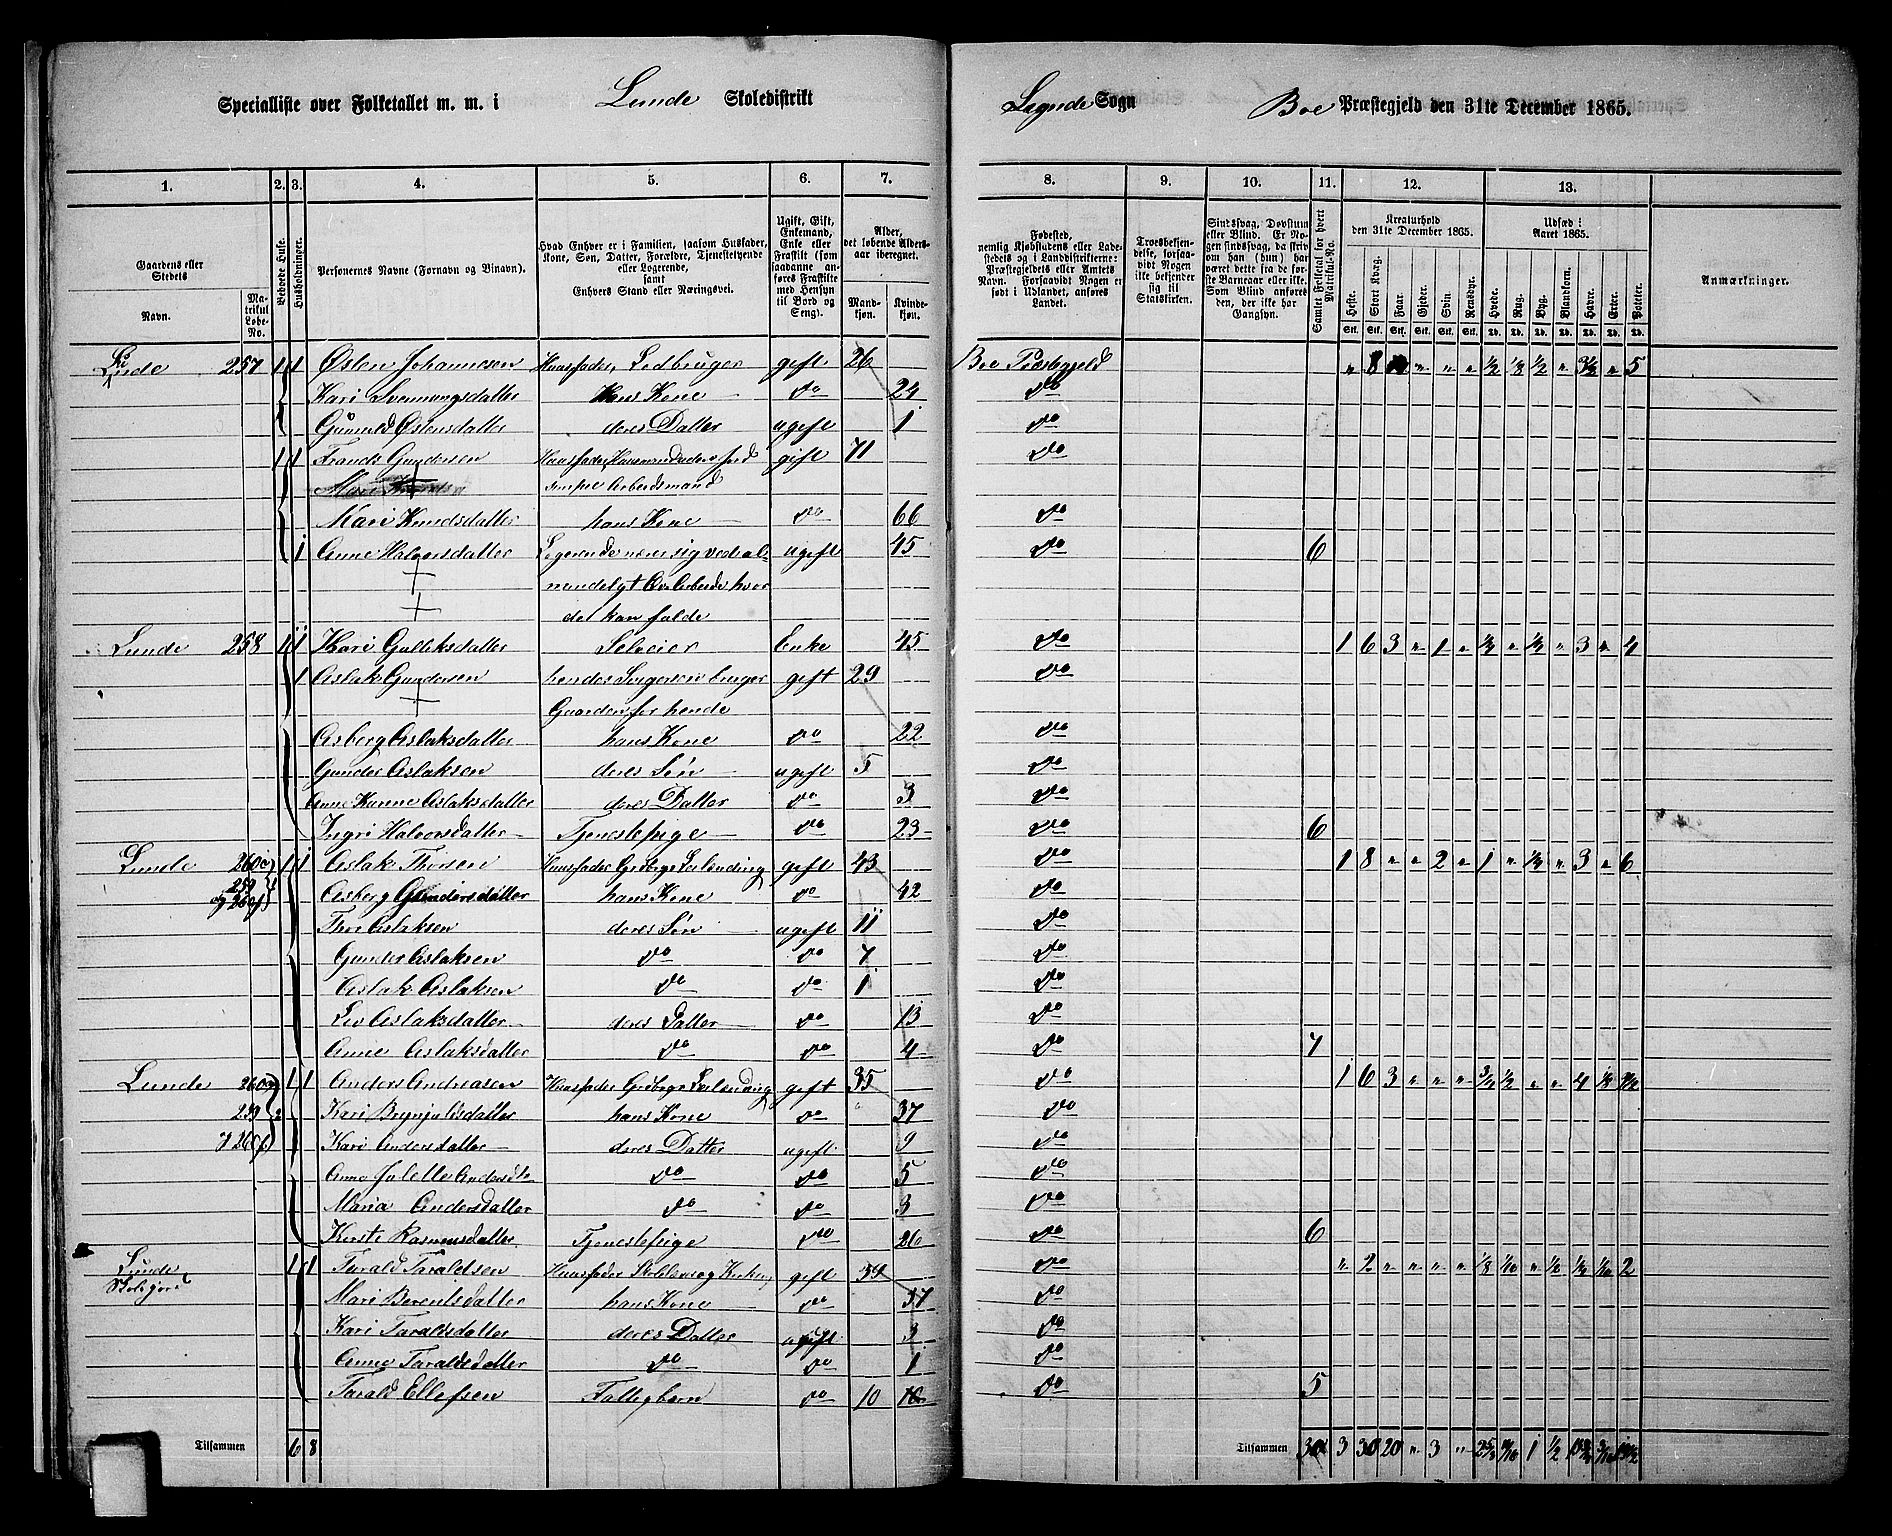 Specialliste over Folketallet m. m. i Lunde Skoledistrikt
Sogn Boe Præstegjeld den 31te December 1865.
1. 2. 3. 4. 5. 6. 7. 8. 9. 10. 11. 12. 13.
Gaardens eller Stedets Navn.
Matrikul Løbe-No.
Beboede Huse.
Husholdninger.
Personernes Navne (Fornavn og Binavn).
Hvad Enhver er i Familien, saasom Husfader, Kone, Søn, Datter, Forældre, Tjenestetyende eller Logerende, samt Enhvers Stand eller Næringsvei.
Ugift, Gift, Enkemand, Enke eller Fraskilt (som saadanne anføres Fraskilte med Hensyn til Bord og Seng).
Alder, det løbende Aldersaar iberegnet.
Mandkjøn. Kvindekjøn.
Fødested, nemlig Kjøbstadens eller Ladestedets og i Landdistrikterne: Præstegjeldets eller Amtets Navn. Forsaavidt Nogen er født i Udlandet, anføres Landet.
Troesbekjendelse, forsaavidt Nogen ikke bekjender sig til Statskirken.
Sindssvag, Døvstum eller Blind. Er Nogen sindssvag, da skriv om han (hun) har været dette fra de første Barneaar eller ikke. Som Blind anføres den, der ikke har Gangsyn.
Samlet Folketal for hvert Matrikul-No.
Kreaturhold den 31te December 1865.
Heste. Stort Kvæg. Faar. Gjeder. Svin. Rensdyr.
Udsæd i Aaret 1865.
Hvede. Rug. Byg. Blandkorn. Havre. Erter. Poteter.
Anmærkninger.
Lunde 257 1 1 Østen Johannesen Huusfader, gift 26 Boe
Kari Svennungsdatter Hans Kone do 24 do
Gunnild Østensdatter deres Datter ugift 1 do
1 1 Frands Gundersen gift 71 do
Arbeidsmand
Mari Knudsdatter hans Kone do 66 do
1 Anne Halvorsdatter ugift 45 do 6
hvor
det kan falde
Lunde 258 1 1 Kari Gulleksdatter Selveier Enke 45 do 1 6 3 " 1 "
1 Aslak Gundersen gift 29 do
Gaarden for hende
Asberg Aslaksdatter hans Kone do 22 do
Gunder Aslaksen deres Søn ugift 5 do
Anne Karine Aslaksdatter deres Datter do 3 do
Ingri Halvorsdatter Tjenestepige do 23 do 6
Lunde 1 1 Aslak Thorsen Huusfader gift 43 do 1 8 " " 2 "
Asberg Gundersdatter hans Kone do 42 do
Thor Aslaksen deres Søn ugift 11 do
Gunder Aslaksen do do 7 do
Aslak Aslaksen do do 1 do
Liv Aslaksdatter deres Datter do 13 do
Anne Aslaksdatter do do 4 do 7
Lunde 1 1 Anders Andreasen Huusfader gift 35 do 1 6 3 " " "
Kari Brynjulfsdatter hans Kone do 37 do
Kari Andersdatter deres Datter ugift 9 do
do do 5 do
Maria Andersdatter do do 3 do
Kirste Rasmusdatter Tjenestepige do 20 do 6
Lunde 1 1 Tarald Taraldsen Huusfader gift 39 do " 2 " " " "
Mari Berentsdatter hans Kone do 37 do
Kari Taraldsdatter deres Datter ugift 3 do
Anne Taraldsdatter do do 1 do
Tarald Ellefsen Fattigbarn do 10 do 5
Tilsammen 6 8 Tilsammen 30 3 30 20 " 3 "